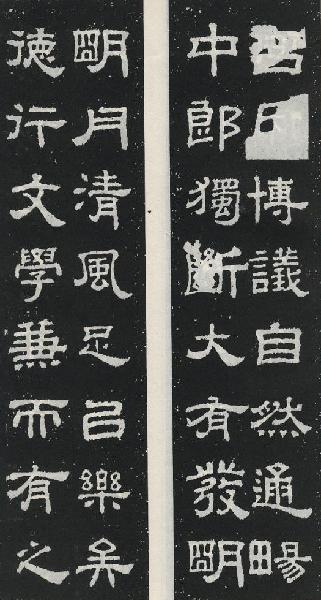 博議自然通暢
中郎獨斷大有發朙
朙月清風足㠯樂矣
徳行文學兼而有之